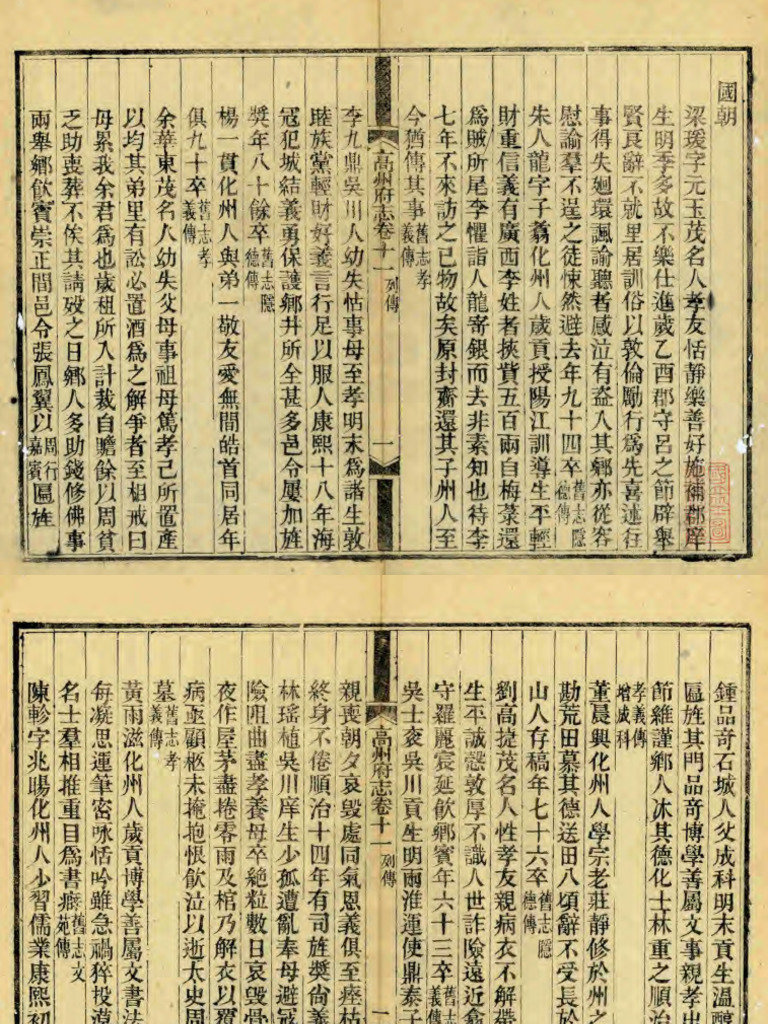 國朝
梁瑗字元玉茂名人孝友恬靜樂善好施補郡庠
生明季多故不樂仕進歲乙酉郡守呂之節辟舉
賢良辭不就里居訓俗以敦倫勵行爲先喜述往
事得失廻環諷諭聽者感泣有盗入其鄉亦從容
慰諭羣不逞之徒悚然避去年九十四卒舊志隱德傳
朱人龍字子翥化州人歲貢授陽江訓導生平輕
財重信義有廣西李姓者挾貲五百兩自梅菉還
爲賊所尾李懼詣人龍寄銀而去非素知也待李
七年不來訪之已物故矣原封齎還其子州人至
今猶傳其事舊志孝義傳
高州府志卷十一 列傳 一
李九鼎吳川人幼失怙事母至孝明末爲諸生敦
睦族黨輕財好義言行足以服人康熙十八年海
寇犯城結義勇保護鄉井所全甚多邑令屢加旌
獎年八十餘卒舊志隱德傳
楊一貫化州人與弟一敬友愛無間皓首同居年
俱九十卒舊志孝義傳
余華東茂名人幼失父母事祖母篤孝己所置產
以均其弟里有訟必置酒爲之解爭者至相戒曰
毋累我余君爲也歲租所入計栽自贍餘以周貧
乏助喪葬不俟其請歿之日鄉人多助錢修佛事
兩舉鄉飲賓崇正間邑令張鳳翼以周行嘉賓匾旌
鍾品奇石城人父成科明末貢生溫醇
匾旌其門品奇博學善屬文事親孝出
節維謹鄉人冰其德化士林重之順治
孝義傳增成科
董晨興化州人學宗老莊靜修於州之
勘荒田慕其德送田八頃辭不受長於
山人存稿年七十六卒舊志隱德傳
劉高捷茂名人性孝友親病衣不解帶
生平誠慤敦厚不識人世詐險遠近翕
守羅麗宸延飲鄉賓年六十三卒舊志孝義傳
吳士衮吳川貢生明兩淮運使鼎泰子
高州府志卷十一 列傳
親喪朝夕哀毀處同氣恩義俱至痊枯
終身不倦順治十四年有司旌獎尙義
林瑤植吳川庠生少孤遭亂奉母避寇
險阻曲盡孝養母卒絶粒數日哀毀骨
夜作屋茅盡捲零雨及棺乃解衣以覆
病亟顧柩未掩抱恨飲泣以逝太史周
墓舊志孝義傳
黃雨滋化州人歲貢博學善屬文書法
每凝思運筆密咏恬吟雖急禍猝投漠
名士羣相推重目爲書癖舊志文苑傳
陳軫字兆暘化州人少習儒業康熙初